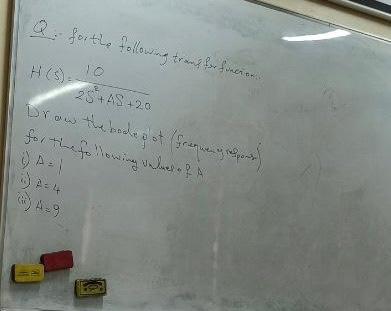 Q:- for the following transfer function:
H(S) = 10
2S²+AS+20
Draw the bode plot (frequency response)
for the following values of A
i) A=1
ii) A=4
iii) A=9